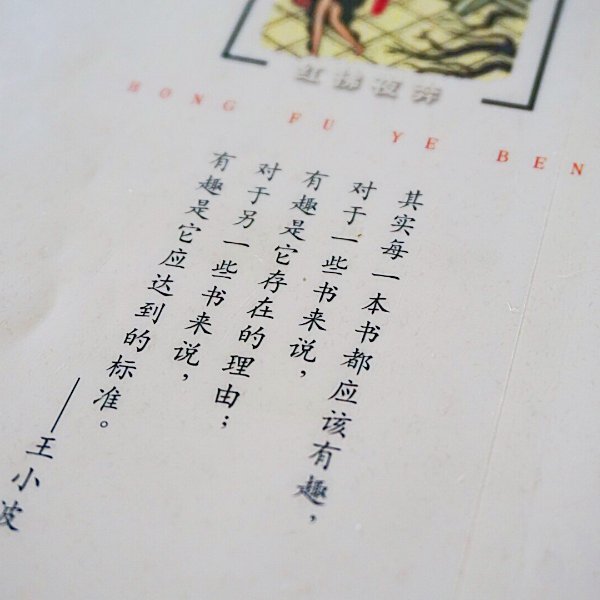 红拂夜奔
HONG FU YE BEN
其实每一本书都应该有趣，
对于一些书来说，
有趣是它存在的理由；
对于另一些书来说，
有趣是它应达到的标准。
——王小波